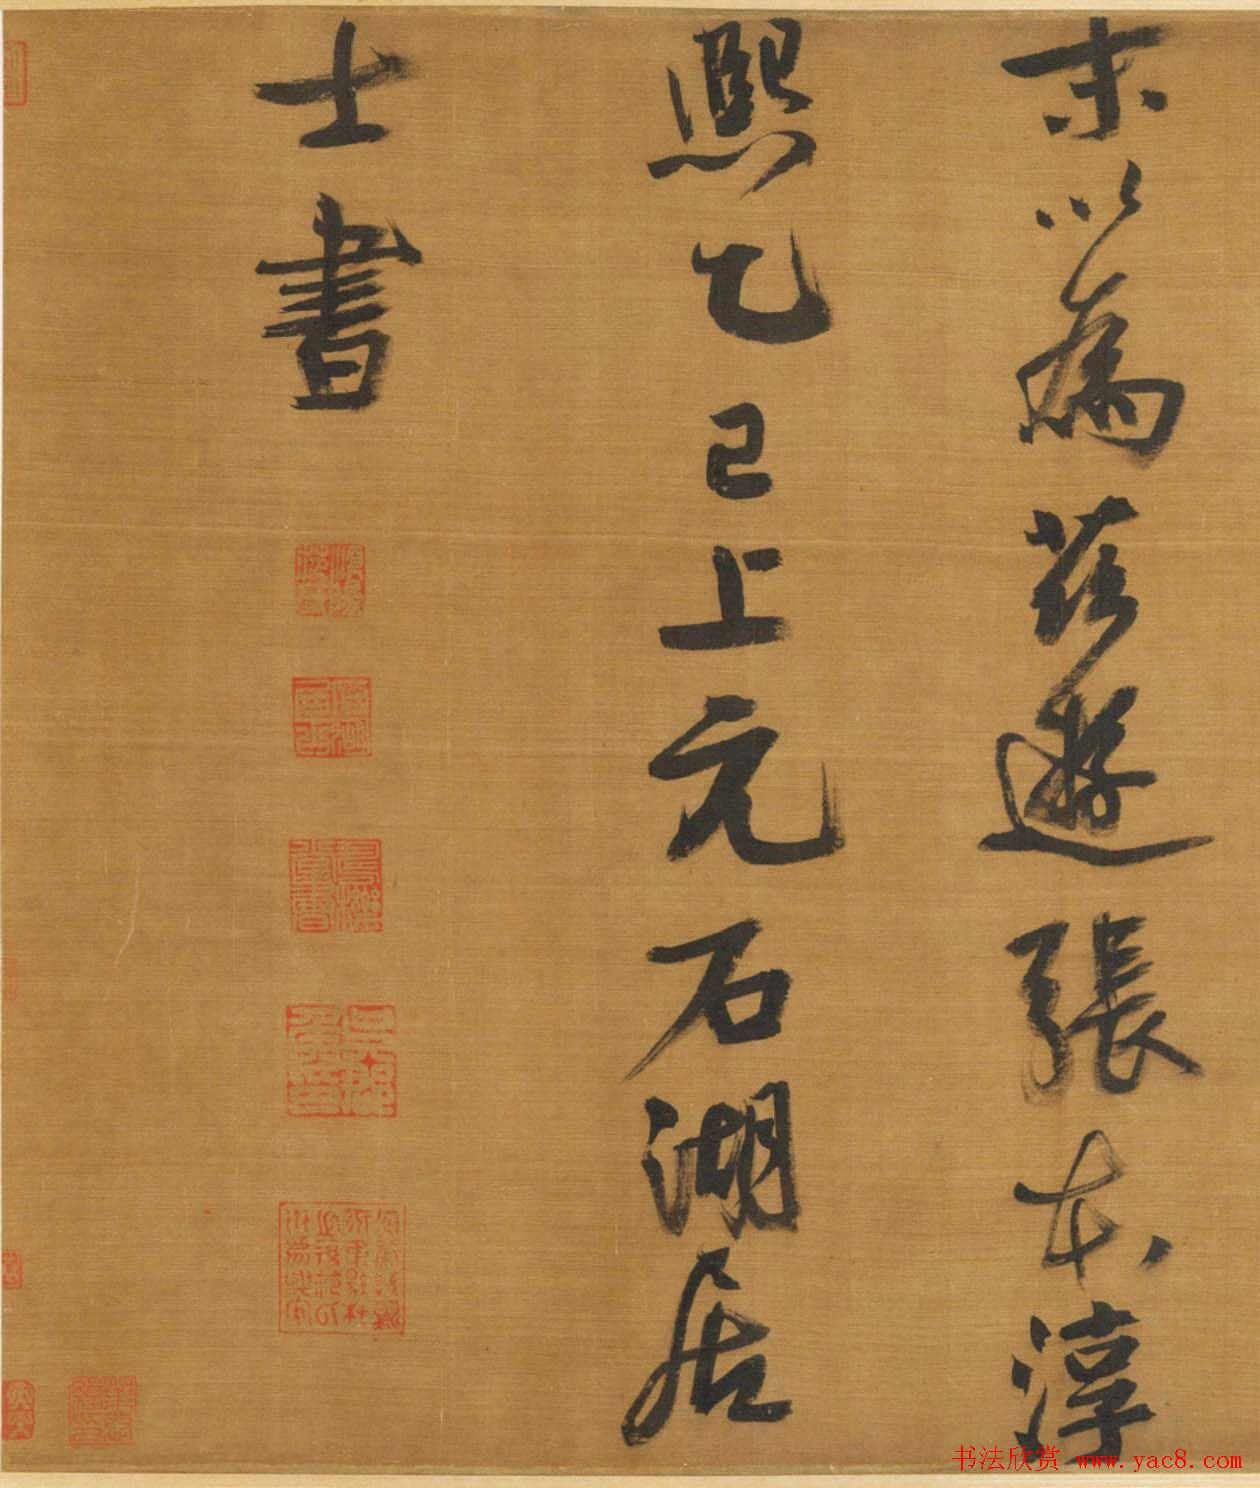 末以為茲遊張本淳
熙乙巳上元石湖居
士書
书法欣赏 www.yac8.com